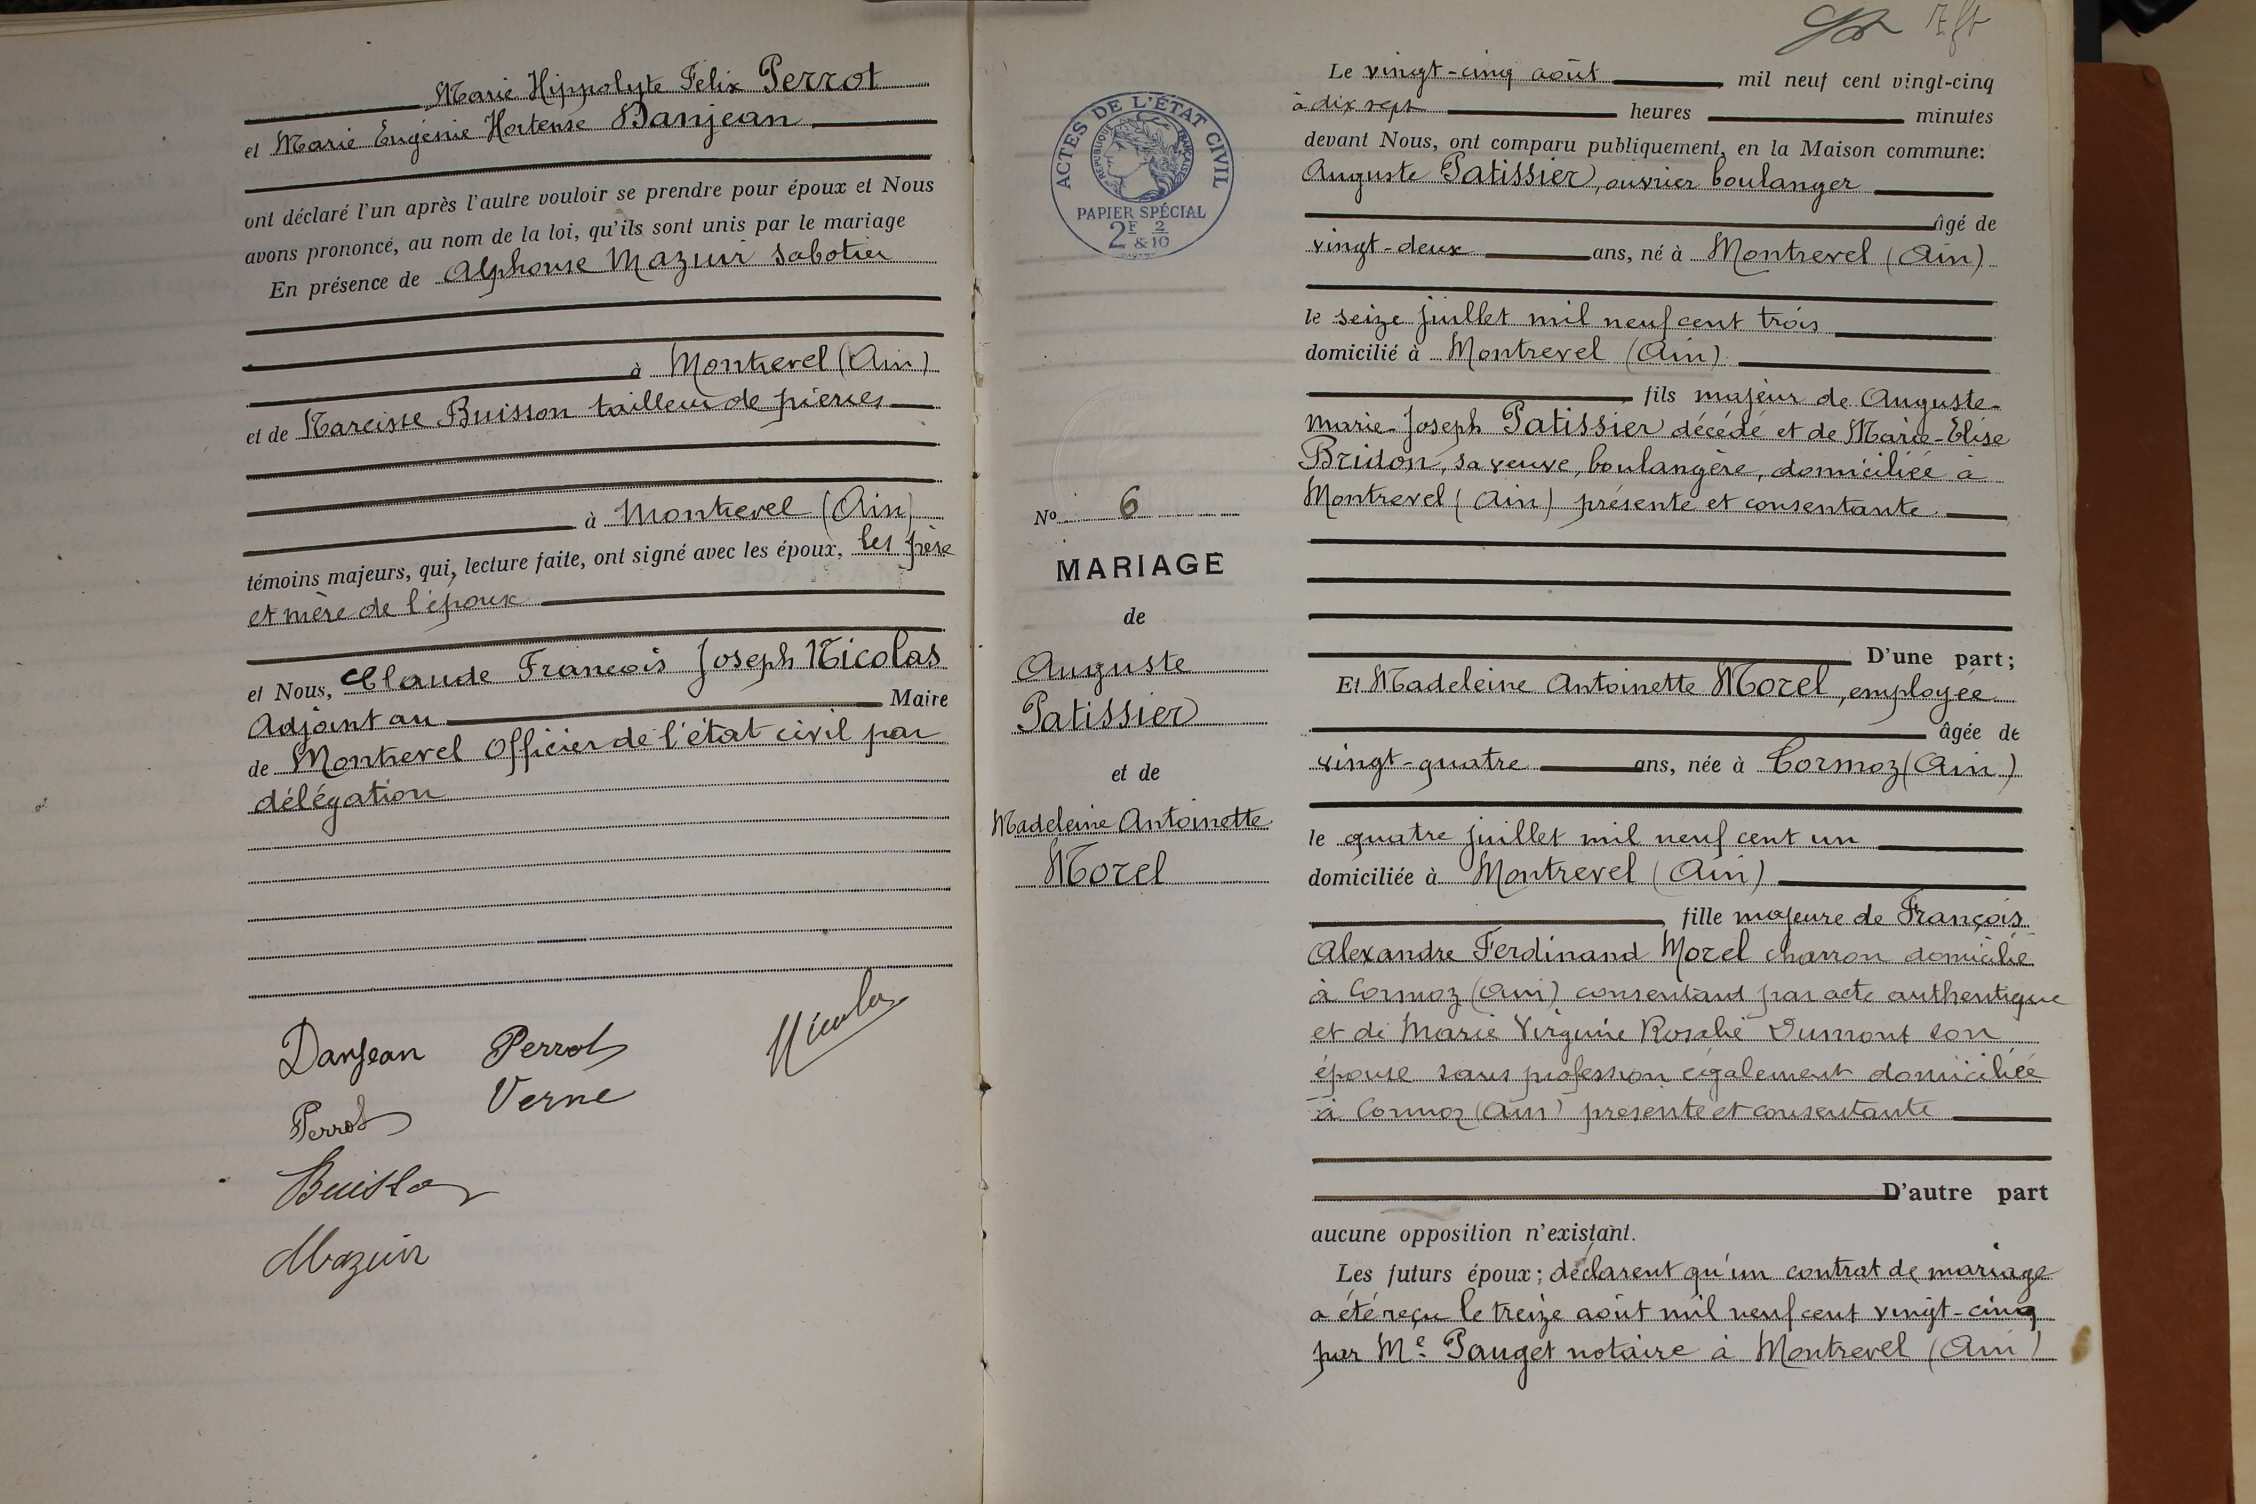 Marie Hippolyte Félix Perrot
et Marie Eugénie Hortense Danjean
ont déclaré l'un après l'autre vouloir se prendre pour époux et Nous
avons prononcé, au nom de la loi, qu'ils sont unis par le mariage
En présence de Alphonse Mazuir sabotier
à Montrevel (Ain)
et de Narcisse Buisson tailleur de pierres
à Montrevel (Ain)
témoins majeurs, qui, lecture faite, ont signé avec les époux, les père
et mère de l'époux
et Nous, Claude François Joseph Nicolas
Adjoint au Maire
de Montrevel Officier de l'état civil par
délégation
Danjean Perrot Nicolas
Verne
Perrot
Buisson
Mazuir
ACTES DE L'ÉTAT CIVIL
RÉPUBLIQUE FRANÇAISE
PAPIER SPÉCIAL
2F & 2/10
No 6
MARIAGE
de
Auguste
Patissier
et de
Madeleine Antoinette
Morel
Le vingt-cinq août mil neuf cent vingt-cinq
à dix sept heures minutes
devant Nous, ont comparu publiquement, en la Maison commune:
Auguste Patissier, ouvrier boulanger
âgé de
vingt-deux ans, né à Montrevel (Ain)
le seize juillet mil neuf cent trois
domicilié à Montrevel (Ain)
fils majeur de Auguste-
Marie-Joseph Patissier décédé et de Marie-Elise
Bridon, sa veuve, boulangère, domiciliée à
Montrevel (Ain) présente et consentante
D'une part;
Et Madeleine Antoinette Morel, employée
âgée de
vingt-quatre ans, née à Cormoz (Ain)
le quatre juillet mil neuf cent un
domiciliée à Montrevel (Ain)
fille majeure de François
Alexandre Ferdinand Morel charron domicilié
à Cormoz (Ain) consentant par acte authentique
et de Marie Virginie Rosalie Dumont son
épouse sans profession également domiciliée
à Cormoz (Ain) présente et consentante
D'autre part
aucune opposition n'existant.
Les futurs époux; déclarent qu'un contrat de mariage
a été reçu le treize août mil neuf cent vingt-cinq
par Me Pauget notaire à Montrevel (Ain)